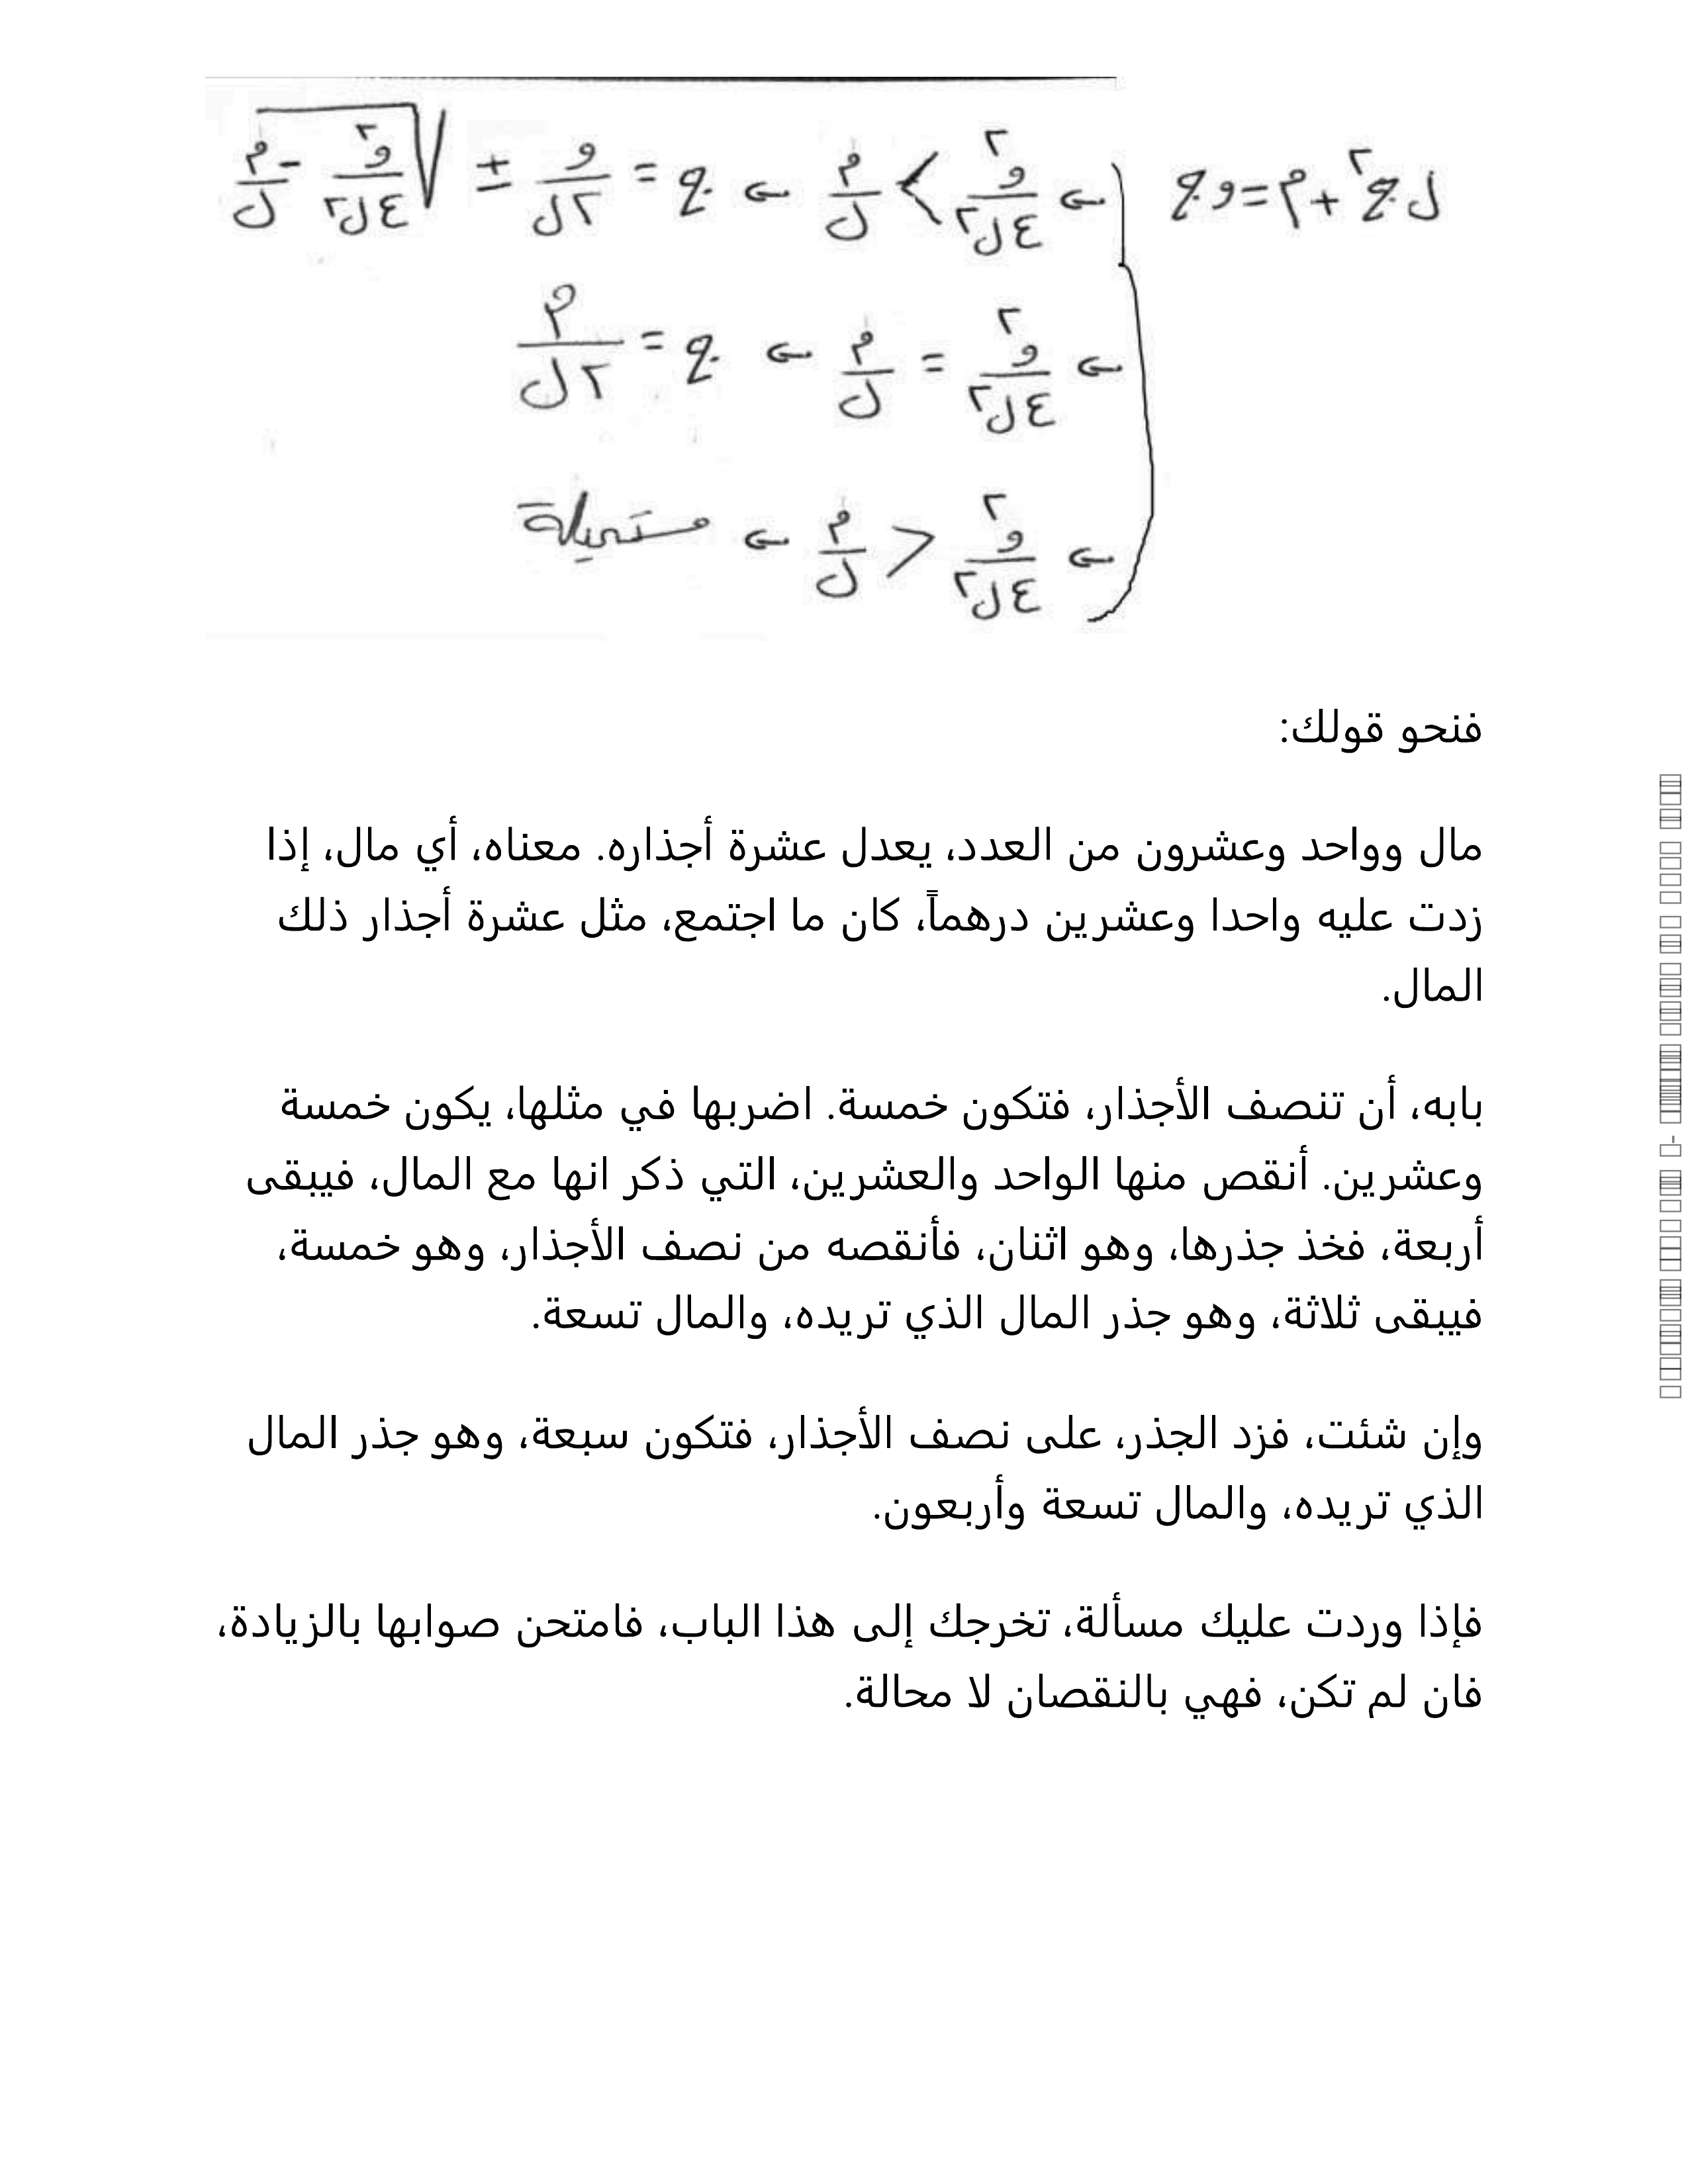 ل ج٢ + م = و ج ← و٢/٤ل٢ > م/ل ← ج = و/٢ل ± √(و٢/٤ل٢ - م/ل)
← و٢/٤ل٢ = م/ل ← ج = م/٢ل
← و٢/٤ل٢ < م/ل ← مستحيلة
فنحو قولك:
مال وواحد وعشرون من العدد، يعدل عشرة أجذاره. معناه، أي مال، إذا
زدت عليه واحدا وعشرين درهماً، كان ما اجتمع، مثل عشرة أجذار ذلك
المال.
بابه، أن تنصف الأجذار، فتكون خمسة. اضربها في مثلها، يكون خمسة
وعشرين. أنقص منها الواحد والعشرين، التي ذكر انها مع المال، فيبقى
أربعة، فخذ جذرها، وهو اثنان، فأنقصه من نصف الأجذار، وهو خمسة،
فيبقى ثلاثة، وهو جذر المال الذي تريده، والمال تسعة.
وإن شئت، فزد الجذر، على نصف الأجذار، فتكون سبعة، وهو جذر المال
الذي تريده، والمال تسعة وأربعون.
فإذا وردت عليك مسألة، تخرجك إلى هذا الباب، فامتحن صوابها بالزيادة،
فان لم تكن، فهي بالنقصان لا محالة.